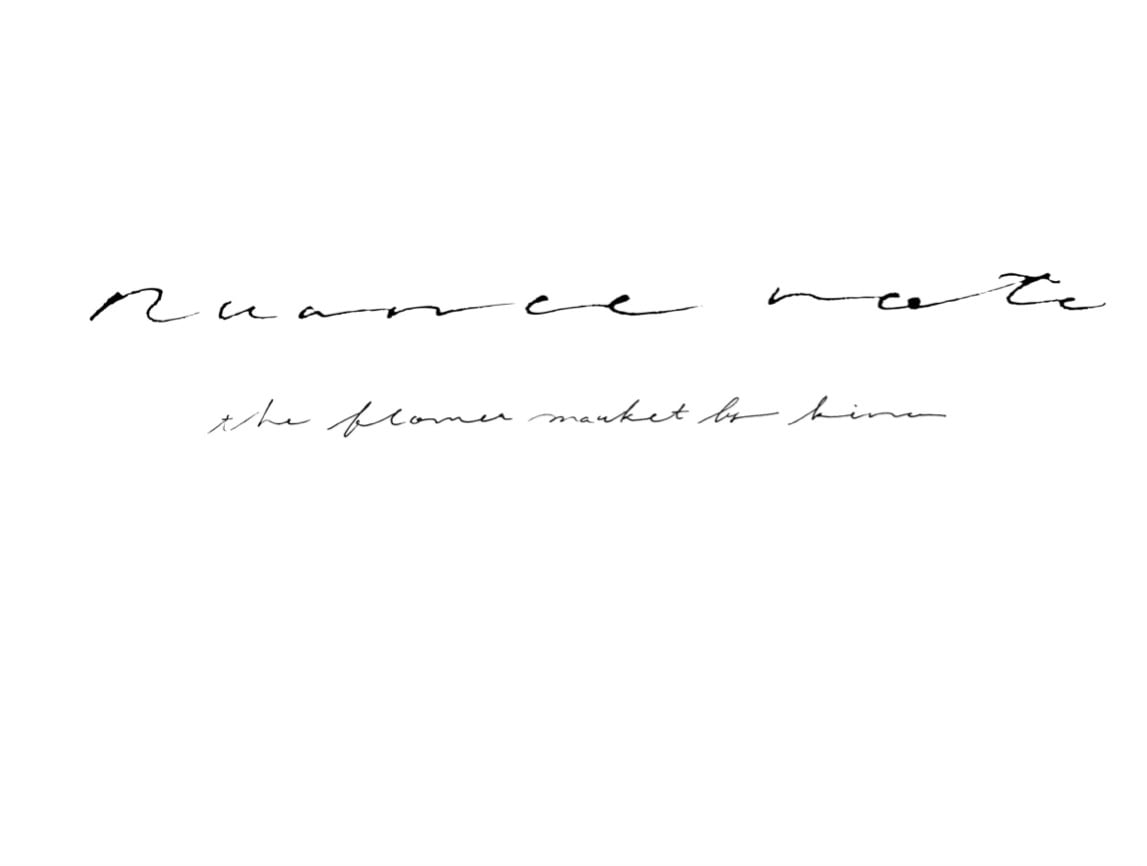 Nuance note
the flower market by